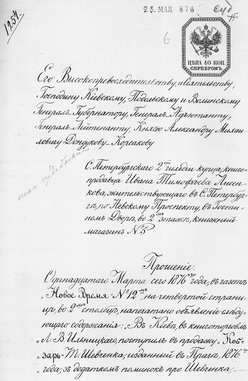 23. МАЯ 876
6
1934
ЦѢНА 40 КОП.
СЕРЕБРОМЪ
Его Высокопревосходительству и Сіятельству,
Господину Кіевскому, Подольскому и Волынскому
Генералъ Губернатору, Генералъ Адъютанту,
Генералъ Лейтенанту Князю Александру Михай-
ловичу Дондукову-Корсакову
С. Петербургскаго 2й гильдіи купца, книго-
продавца Ивана Тимофеева Лисен-
кова, жительствующаго въ С. Петербур-
гѣ, по Невскому Проспекту, въ Гостин-
номъ Дворѣ, во 2мъ этажѣ, книжный
магазинъ № 5
Прошеніе
Одинадцатаго Марта сего 1876 года, въ газетѣ
„Новое Время" № 12 на четвертой страни-
цѣ, во 2мъ столбцѣ, напечатано объявленіе слѣду-
ющаго содержанія: „Въ Кіевѣ, въ книготорговлѣ
Л. В. Ильницкаго, поступилъ въ продажу, „Коб-
зарь" Т. Шевченка, изданный въ Прагѣ, 1876
года; зъ додаткомъ поминокъ про Шевченка: